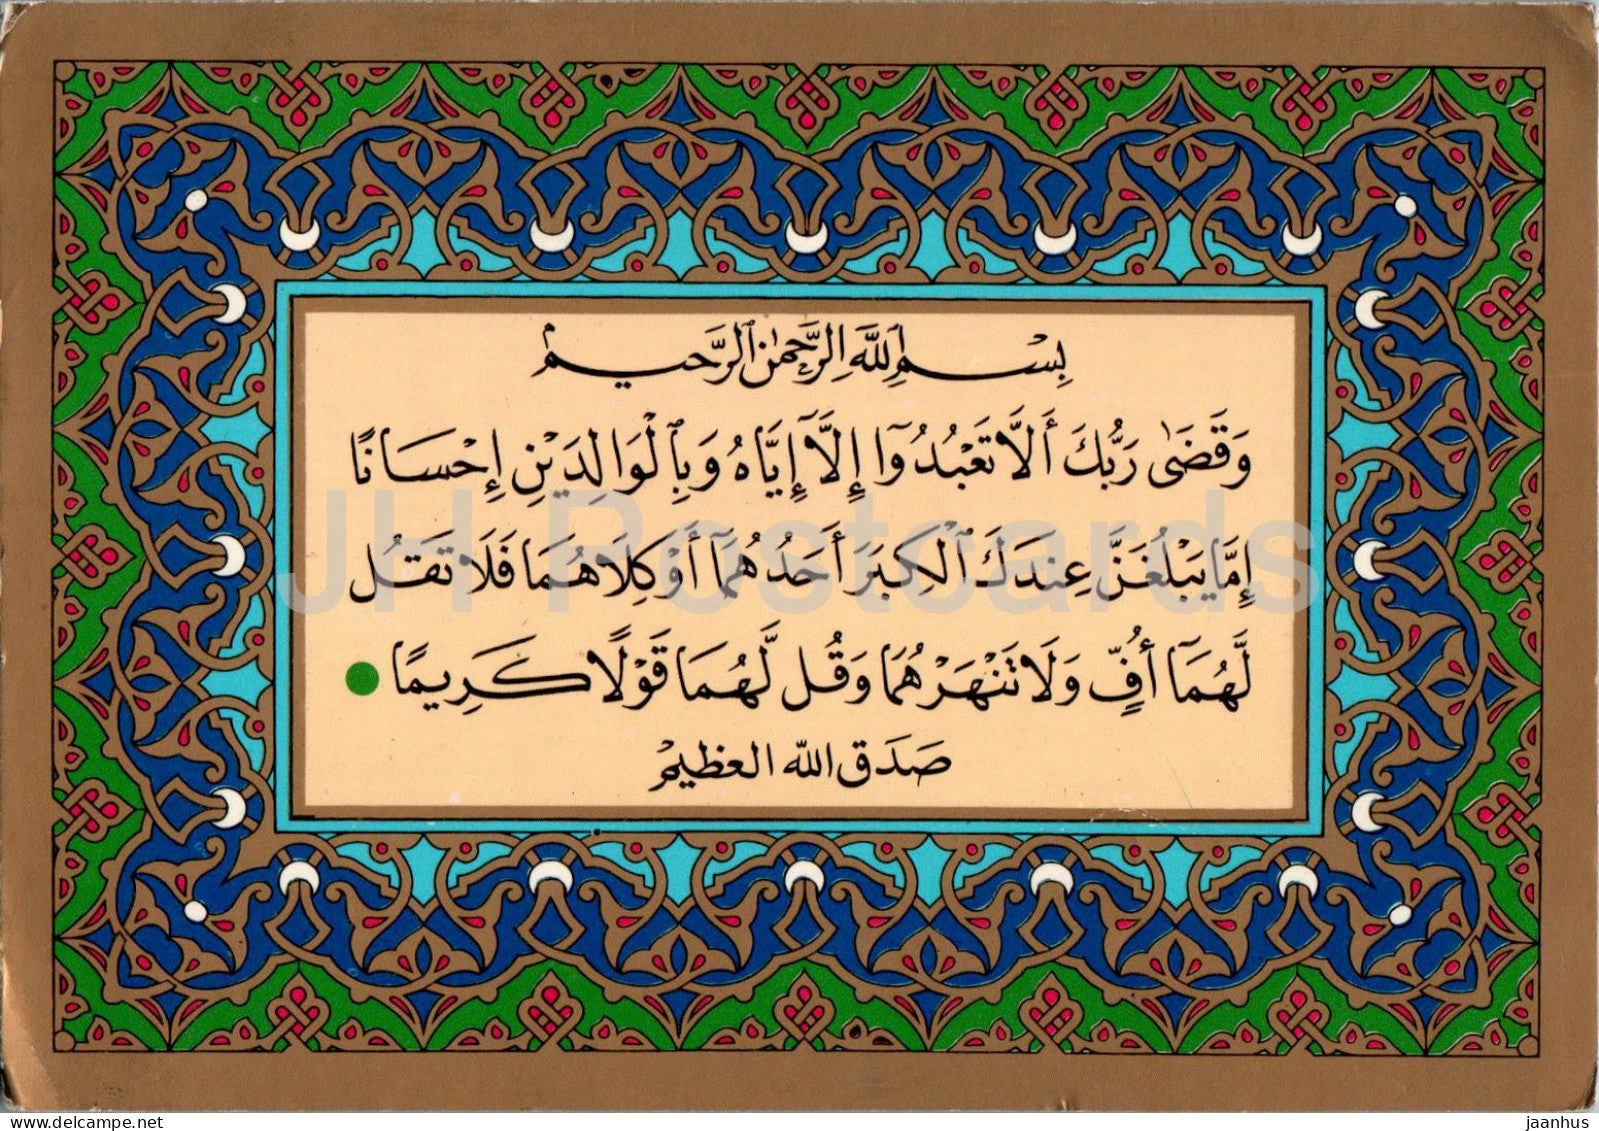 بِسْمِ ٱللَّهِ ٱلرَّحْمَٰنِ ٱلرَّحِيمِ
وَقَضَىٰ رَبُّكَ أَلَّا تَعْبُدُوٓا إِلَّآ إِيَّاهُ وَبِٱلْوَالِدَيْنِ إِحْسَانًا
إِمَّا يَبْلُغَنَّ عِندَكَ ٱلْكِبَرَ أَحَدُهُمَآ أَوْ كِلَاهُمَا فَلَا تَقُل
لَّهُمَآ أُفٍّ وَلَا تَنْهَرْهُمَا وَقُل لَّهُمَا قَوْلًا كَرِيمًا
صَدَقَ اللّٰه العَظيمْ
JH Postcards
delcampe.net
jaanhus